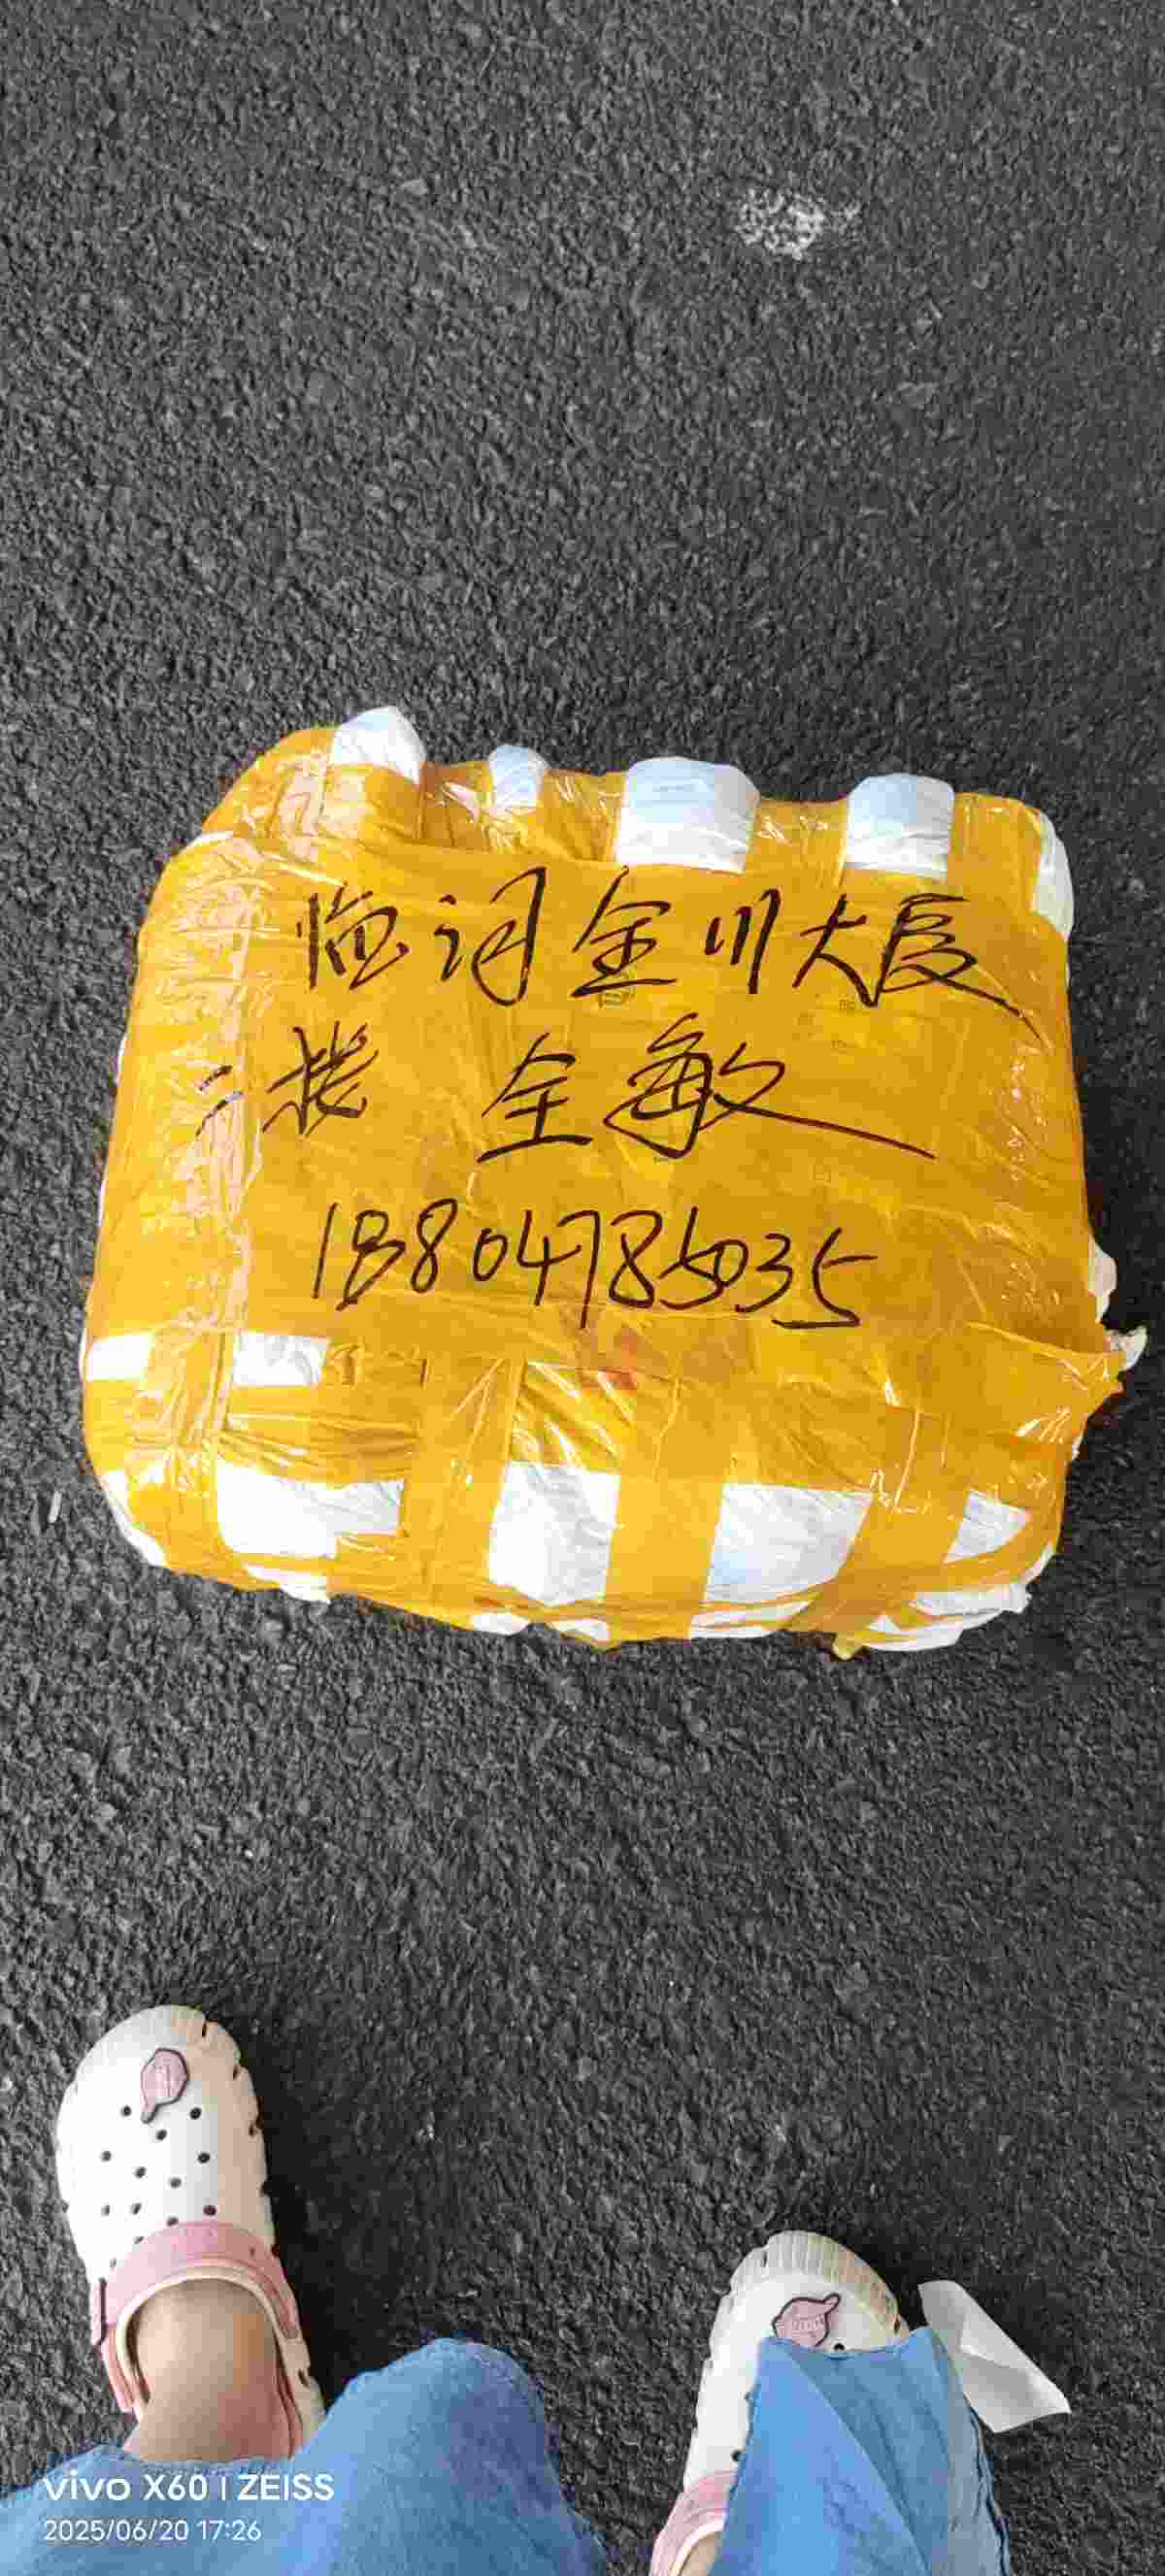 临河金川大厦
二楼 全敏
18804785035
vivo X60 | ZEISS
2025/06/20 17:26